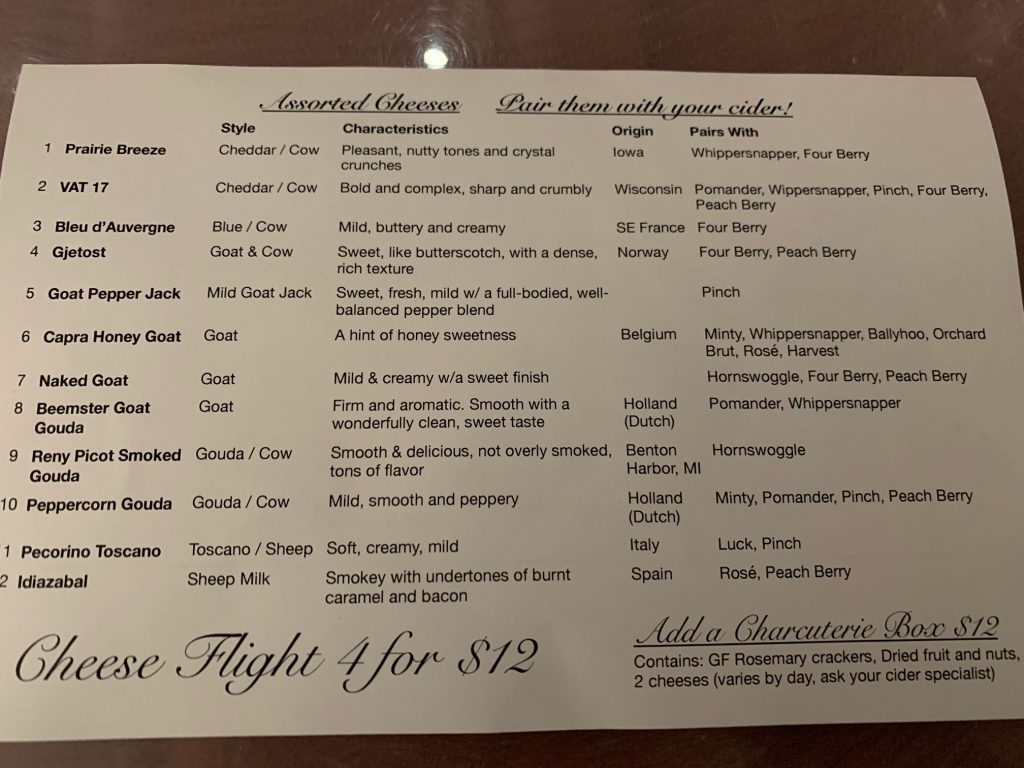 Assorted Cheeses Pair them with your cider!
Style Characteristics Origin Pairs With
1 Prairie Breeze Cheddar / Cow Pleasant, nutty tones and crystal Iowa Whippersnapper, Four Berry
crunches
2 VAT 17 Cheddar / Cow Bold and complex, sharp and crumbly Wisconsin Pomander, Wippersnapper, Pinch, Four Berry,
Peach Berry
3 Bleu d'Auvergne Blue / Cow Mild, buttery and creamy SE France Four Berry
4 Gjetost Goat & Cow Sweet, like butterscotch, with a dense, Norway Four Berry, Peach Berry
rich texture
5 Goat Pepper Jack Mild Goat Jack Sweet, fresh, mild w/ a full-bodied, well- Pinch
balanced pepper blend
6 Capra Honey Goat Goat A hint of honey sweetness Belgium Minty, Whippersnapper, Ballyhoo, Orchard
Brut, Rosé, Harvest
7 Naked Goat Goat Mild & creamy w/a sweet finish Hornswoggle, Four Berry, Peach Berry
8 Beemster Goat Goat Firm and aromatic. Smooth with a Holland Pomander, Whippersnapper
Gouda wonderfully clean, sweet taste (Dutch)
9 Reny Picot Smoked Gouda / Cow Smooth & delicious, not overly smoked, Benton Hornswoggle
Gouda tons of flavor Harbor, MI
10 Peppercorn Gouda Gouda / Cow Mild, smooth and peppery Holland Minty, Pomander, Pinch, Peach Berry
(Dutch)
1 Pecorino Toscano Toscano / Sheep Soft, creamy, mild Italy Luck, Pinch
2 Idiazabal Sheep Milk Smokey with undertones of burnt Spain Rosé, Peach Berry
caramel and bacon
Cheese Flight 4 for $12
Add a Charcuterie Box $12
Contains: GF Rosemary crackers, Dried fruit and nuts,
2 cheeses (varies by day, ask your cider specialist)